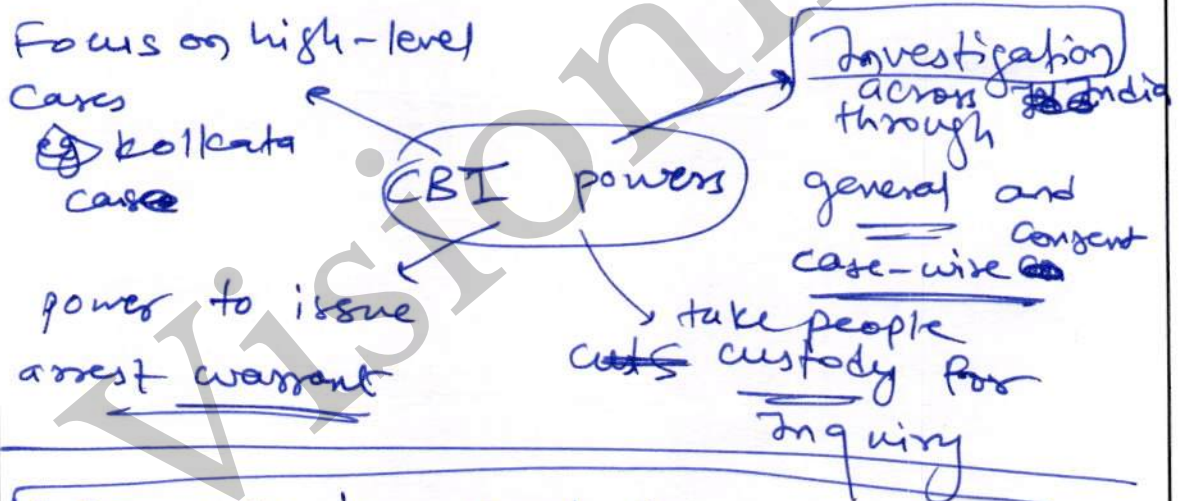 Focus on high-level
Cases
eg kolkata
case
Investigation
across India
through
general and
case-wise Consent
CBI powers
power to issue
arrest warrant
take people
custody for
Inquiry
Vision